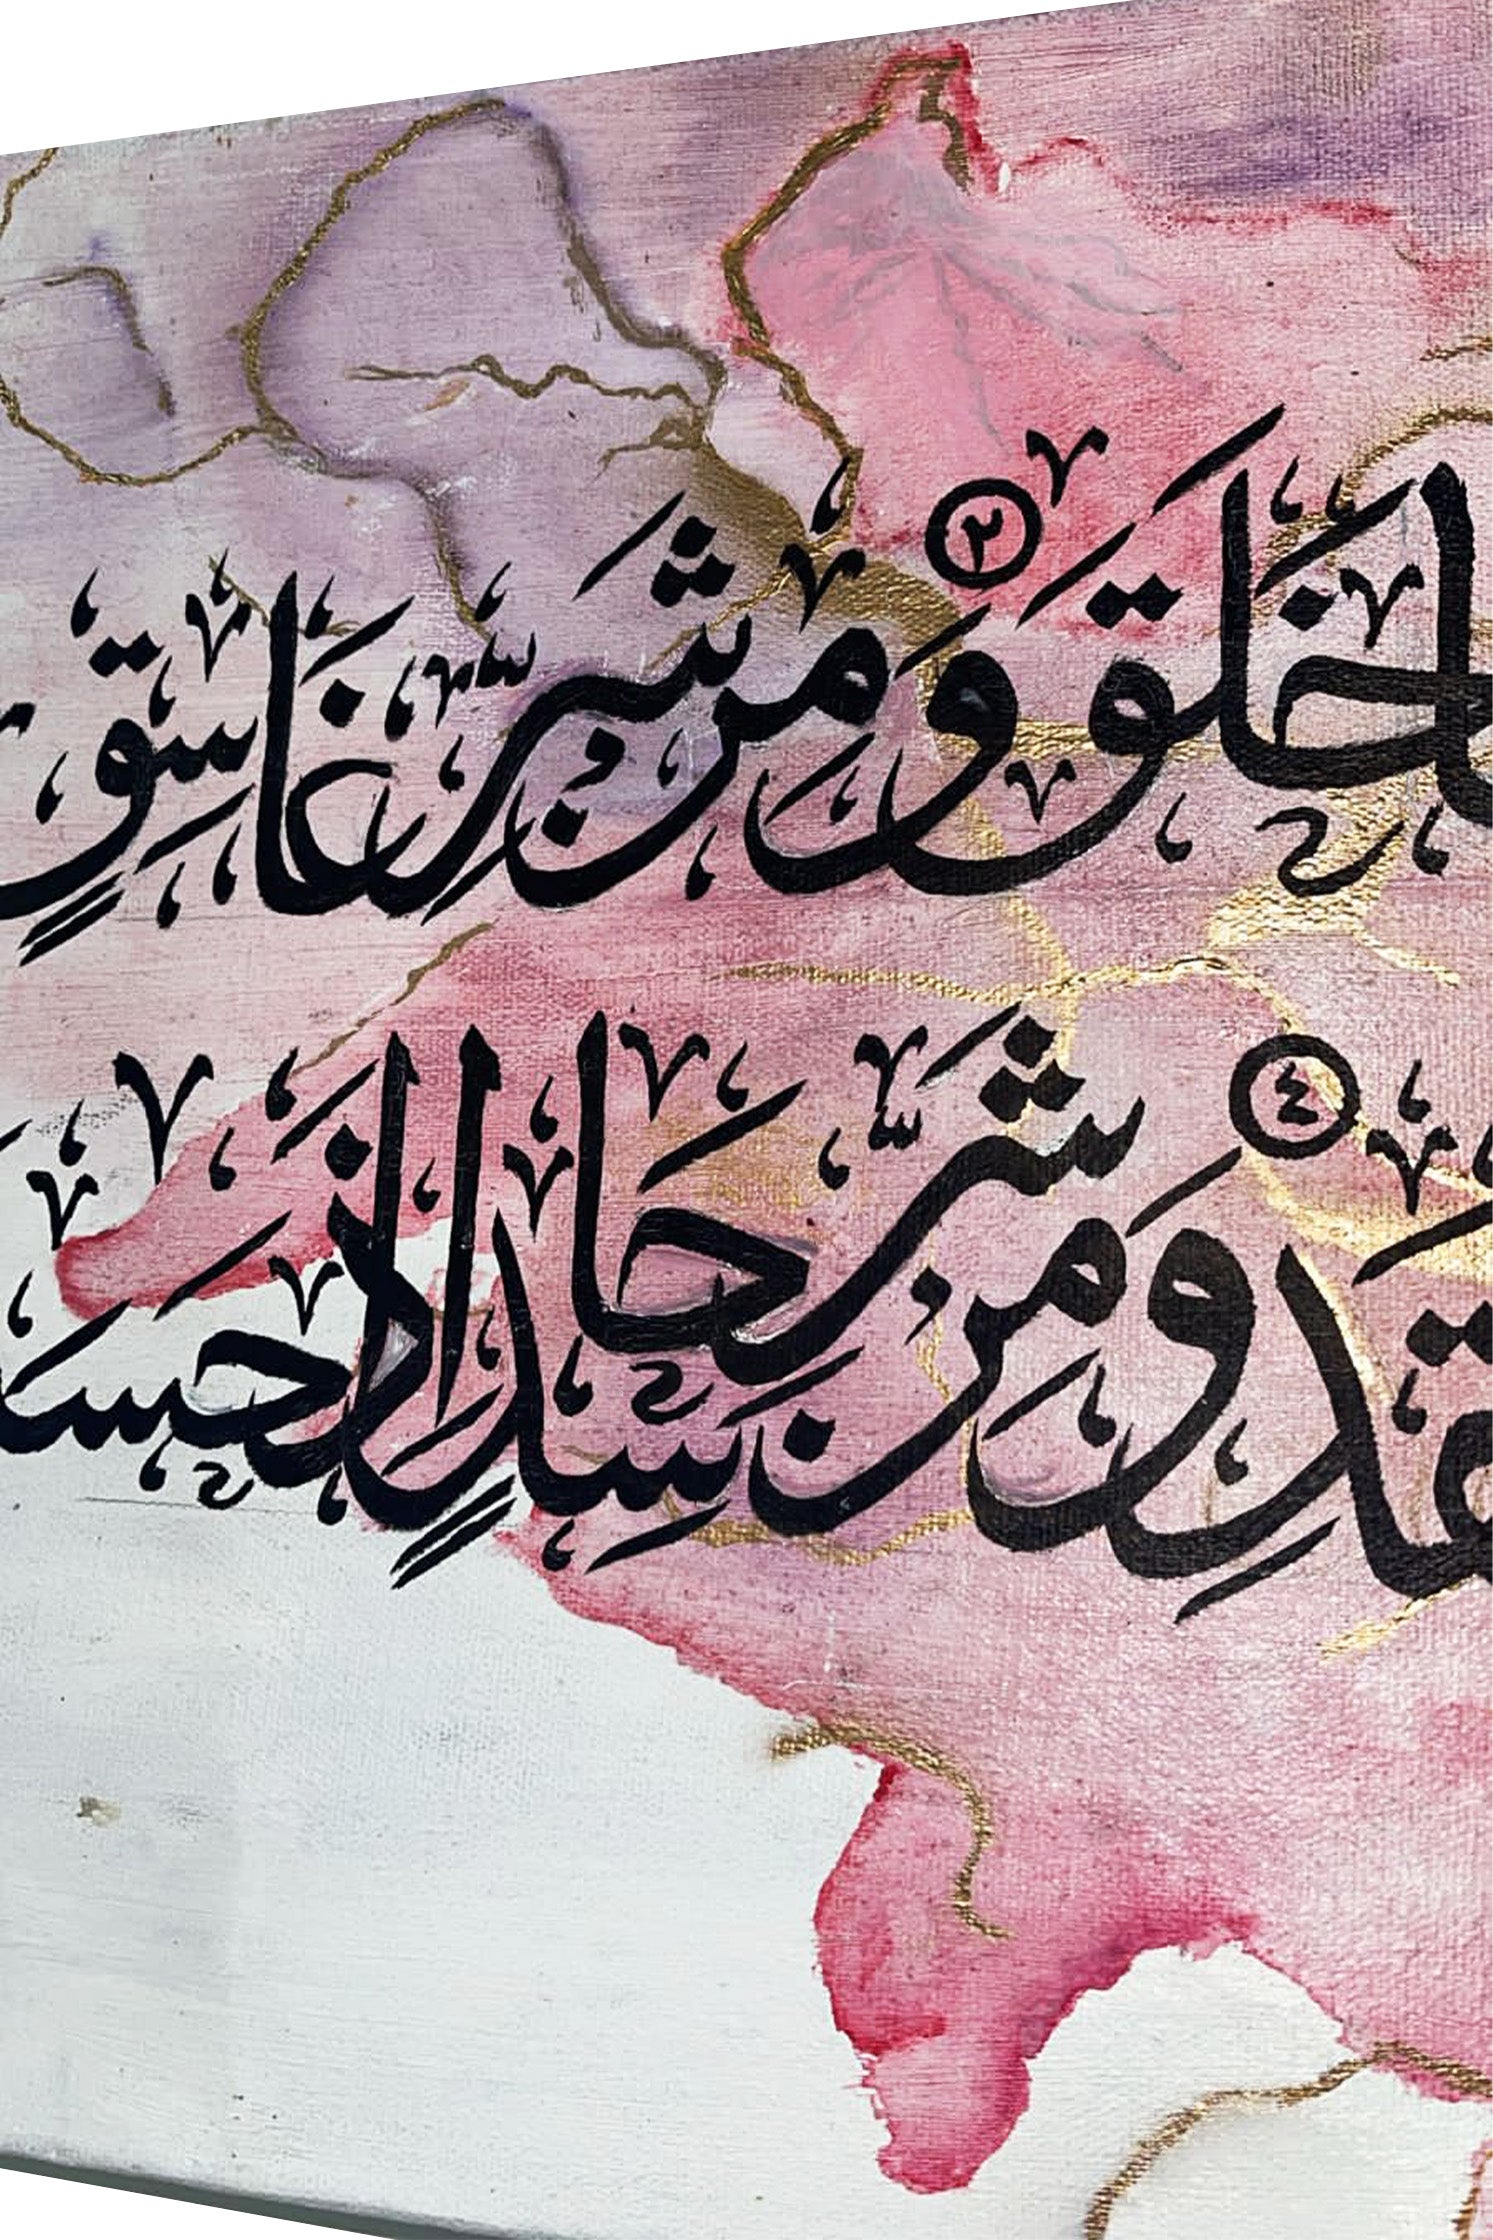 خَلَقَ ٢ وَمِن شَرِّ غَاسِقٍ
٤ وَمِن شَرِّ حَاسِدٍ إِذَا حَسَ